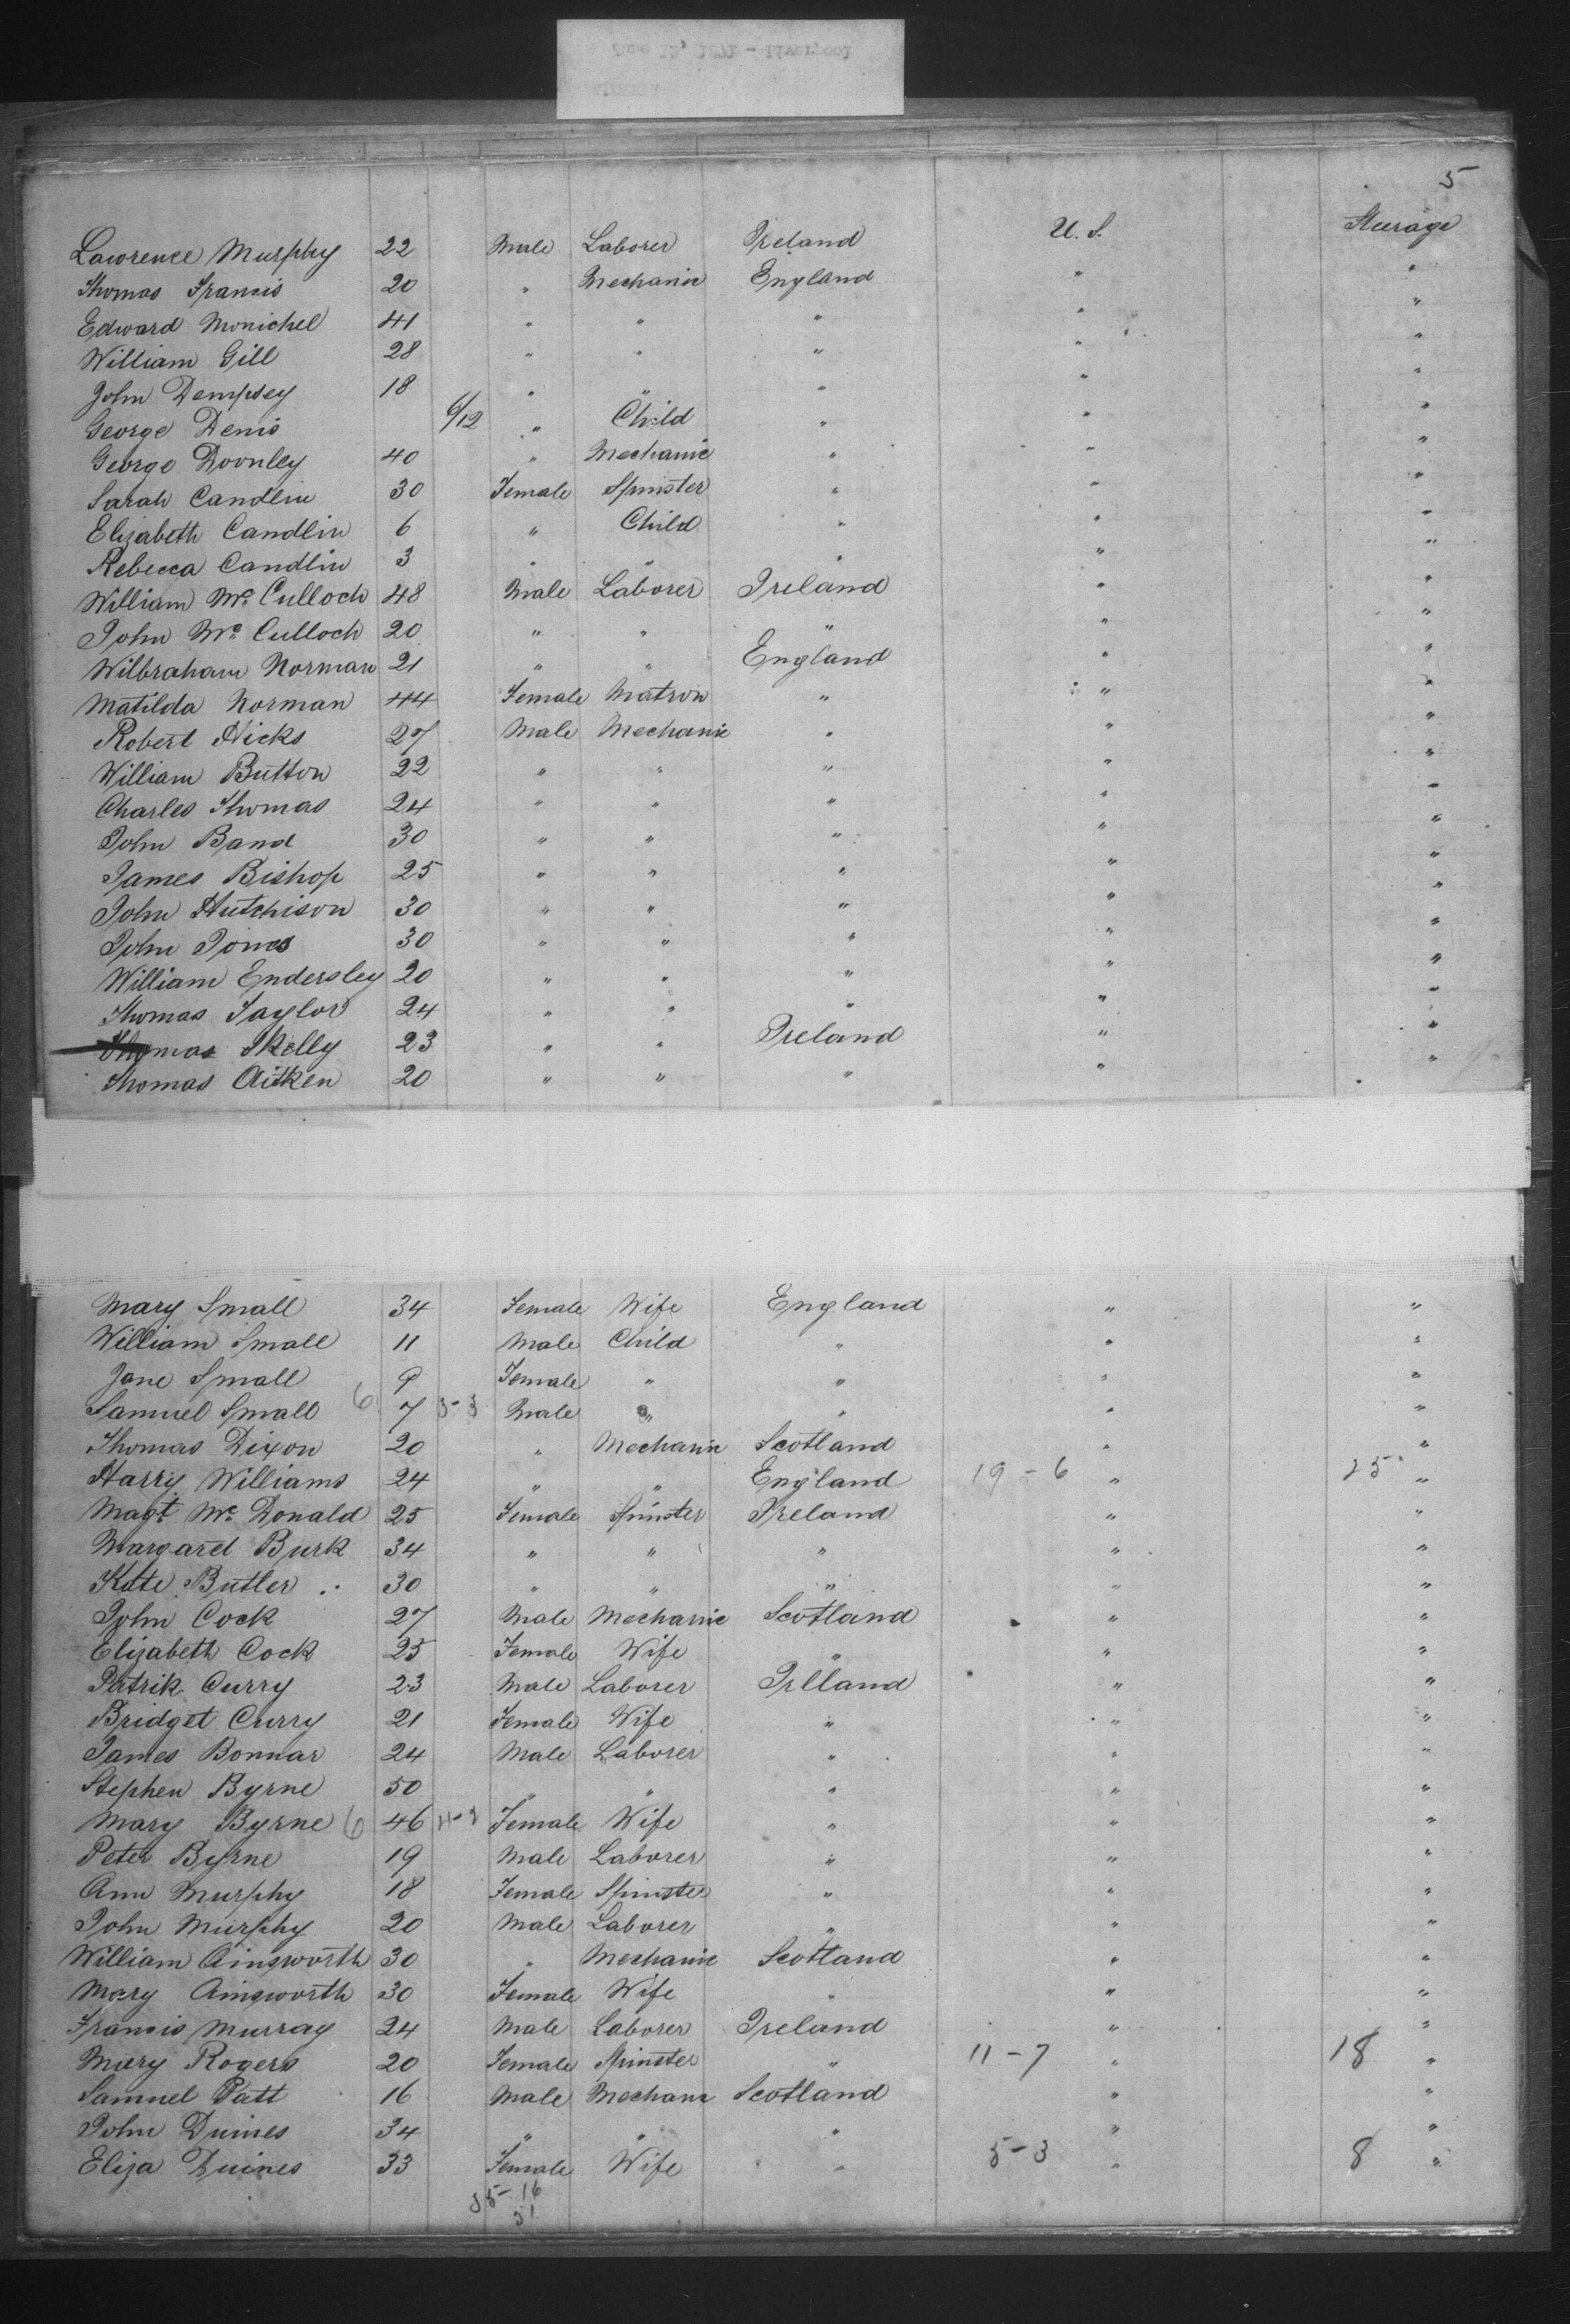 5
Lawrence Murphy 22 Male Laborer Ireland U.S. Steerage
Thomas Francis 20 " Mechanic England " "
Edward Monichel 41 " " " " "
William Gill 28 " " " " "
John Dempsey 18 " " " " "
George Denis 6/12 " Child " " "
George Doonley 40 " Mechanic " " "
Sarah Candlin 30 Female Spinster " " "
Elizabeth Candlin 6 " Child " " "
Rebecca Candlin 3 " " " " "
William Mc Culloch 48 Male Laborer Ireland " "
John Mc Culloch 20 " " " " "
Wilbraham Norman 21 " " England " "
Matilda Norman 44 Female Matron " " "
Robert Hicks 27 Male Mechanic " " "
William Button 22 " " " " "
Charles Thomas 24 " " " " "
John Band 30 " " " " "
James Bishop 25 " " " " "
John Hutchison 30 " " " " "
John Jones 30 " " " " "
William Endersley 20 " " " " "
Thomas Taylor 24 " " " " "
Thomas Skelly 23 " " Ireland " "
Thomas Aitken 20 " " " " "
Mary Small 34 Female Wife England " "
William Small 11 Male Child " " "
Jane Small 9 Female " " " "
Samuel Small 6 7 5-3 Male " " " "
Thomas Dixon 20 " Mechanic Scotland " "
Harry Williams 24 " " England 19-6 " 25 "
Magt Mc Donald 25 Female Spinster Ireland " "
Margaret Burk 34 " " " " "
Kate Butler 30 " " " " "
John Cock 27 Male Mechanic Scotland " "
Elizabeth Cock 25 Female Wife " " "
Patrik Curry 23 Male Laborer Irlland " "
Bridget Curry 21 Female Wife " " "
James Bonnar 24 Male Laborer " " "
Stephen Byrne 50 " " " " "
Mary Byrne 6 46 Female Wife " " "
Peter Byrne 19 Male Laborer " " "
Ann Murphy 18 Female Spinster " " "
John Murphy 20 Male Laborer " " "
William Ainsworth 30 " Mechanic Scotland " "
Mary Ainsworth 30 Female Wife " " "
Francis Murray 24 Male Laborer Ireland " "
Mary Rogers 20 Female Spinster " 11-7 " 18 "
Samuel Patt 16 Male Mechanc Scotland " "
John Duines 34 " " " " "
Eliza Duines 33 Female Wife " 5-3 " 8 "
35-16
51